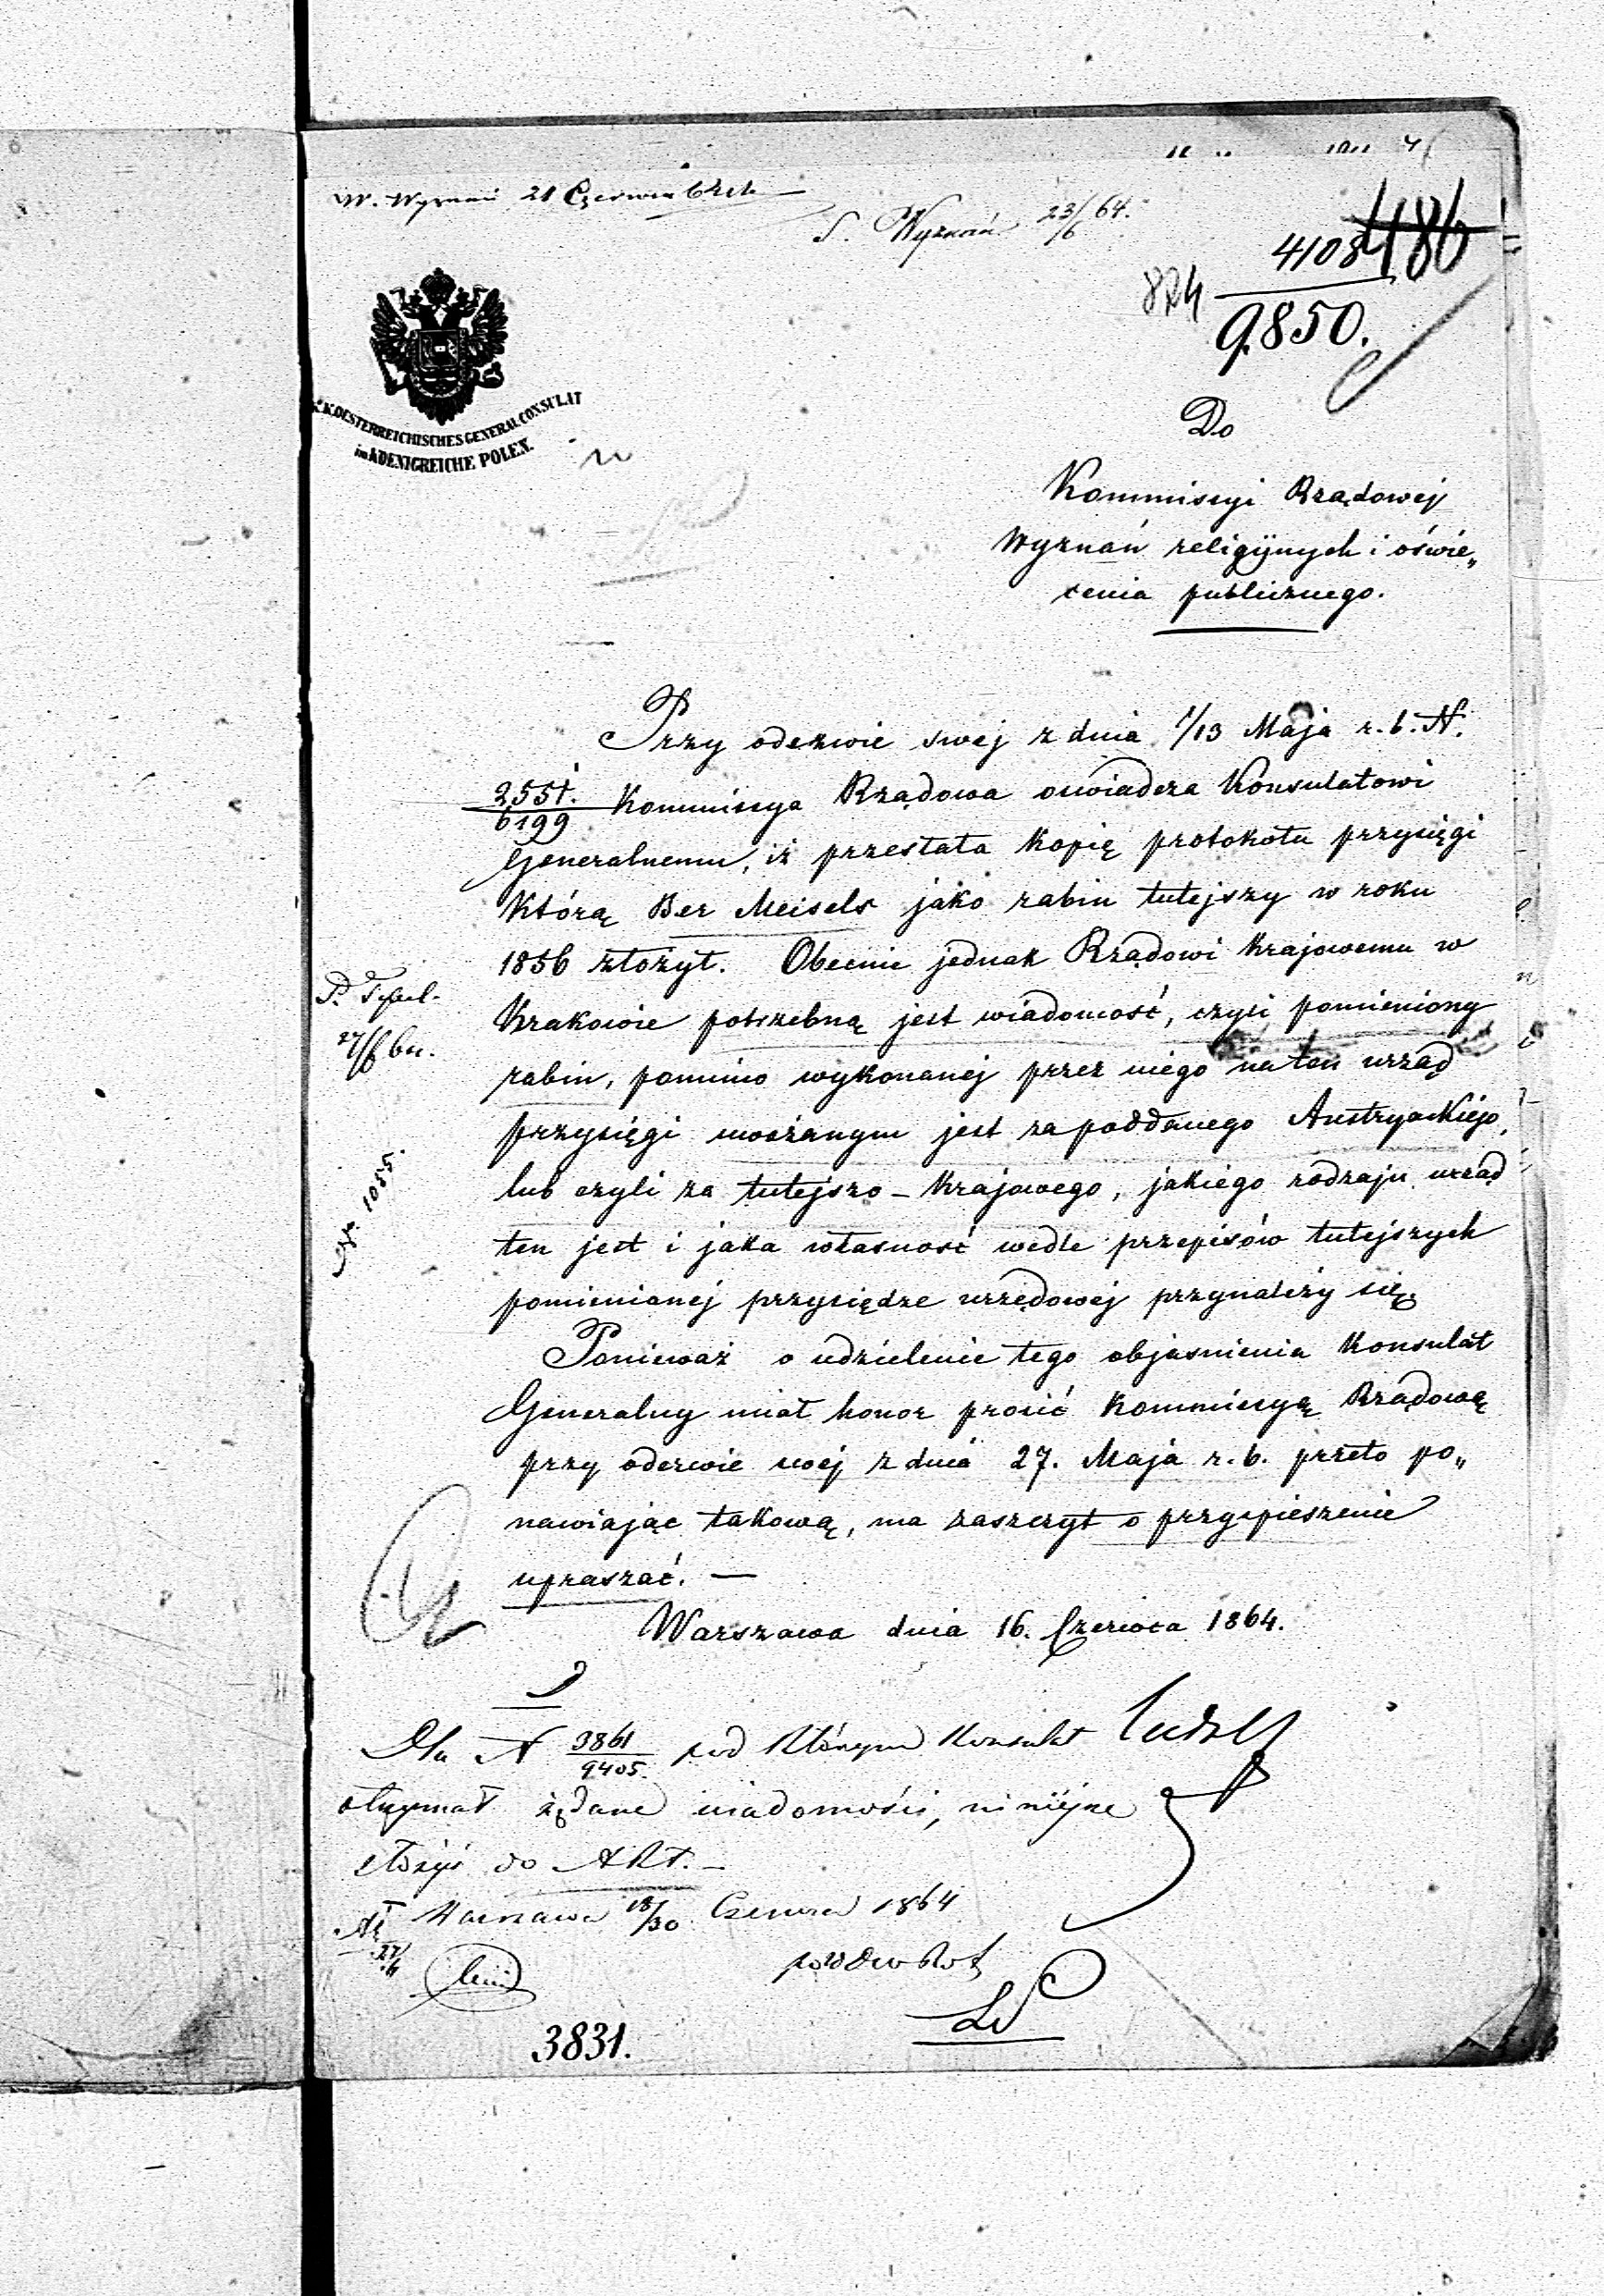 W. Wyznań 21 Czerwca 64 r.
S. Wyznań 23/6 64.
4108
486
824
9850.
K. K. OESTERREICHISCHES GENERAL CONSULAT
im KOENIGREICHE POLEN.
Do
Kommissyi Rządowej
Wyznań religijnych i oświe„
cenia publicznego.
Przy odezwie swej z dnia 1/13 Maja r. b. N.
2551./6199 Kommissya Rządowa oświadcza Konsulatowi
Generalnemu, iż przesłała kopię protokołu przysięgi
którą Ber Meisels jako rabin tutejszy w roku
1856 złożył. Obecnie jednak Rządowi krajowemu w
Krakowie potrzebną jest wiadomość, czyli pomieniony
rabin, pomimo wykonanej przez niego na ten urząd
przysięgi uważanym jest za poddanego Austryackiego,
lub czyli za tutejszo-krajowego, jakiego rodzaju urząd
ten jest i jaka własność wedle przepisów tutejszych
pomienianej przysiędze urzędowej przynależy się.
Ponieważ o udzielenie tego objasnienia Konsulat
Generalny miał honor prosić Kommissyą Rządową
przy odezwie swej z dnia 27. Maja r. b. przeto po„
nawiając takową, ma zaszczyt o przyspieszenie
upraszać. —
Warszawa dnia 16. Czerwca 1864.
27/6
1055.
Dla N 3861/9405. pod którym Konsulat
otrzymał żądane wiadomości, niniejsze
złożyć do Akt. —
Warszawa 18/30 Czerwca 1864
27/6
3831.